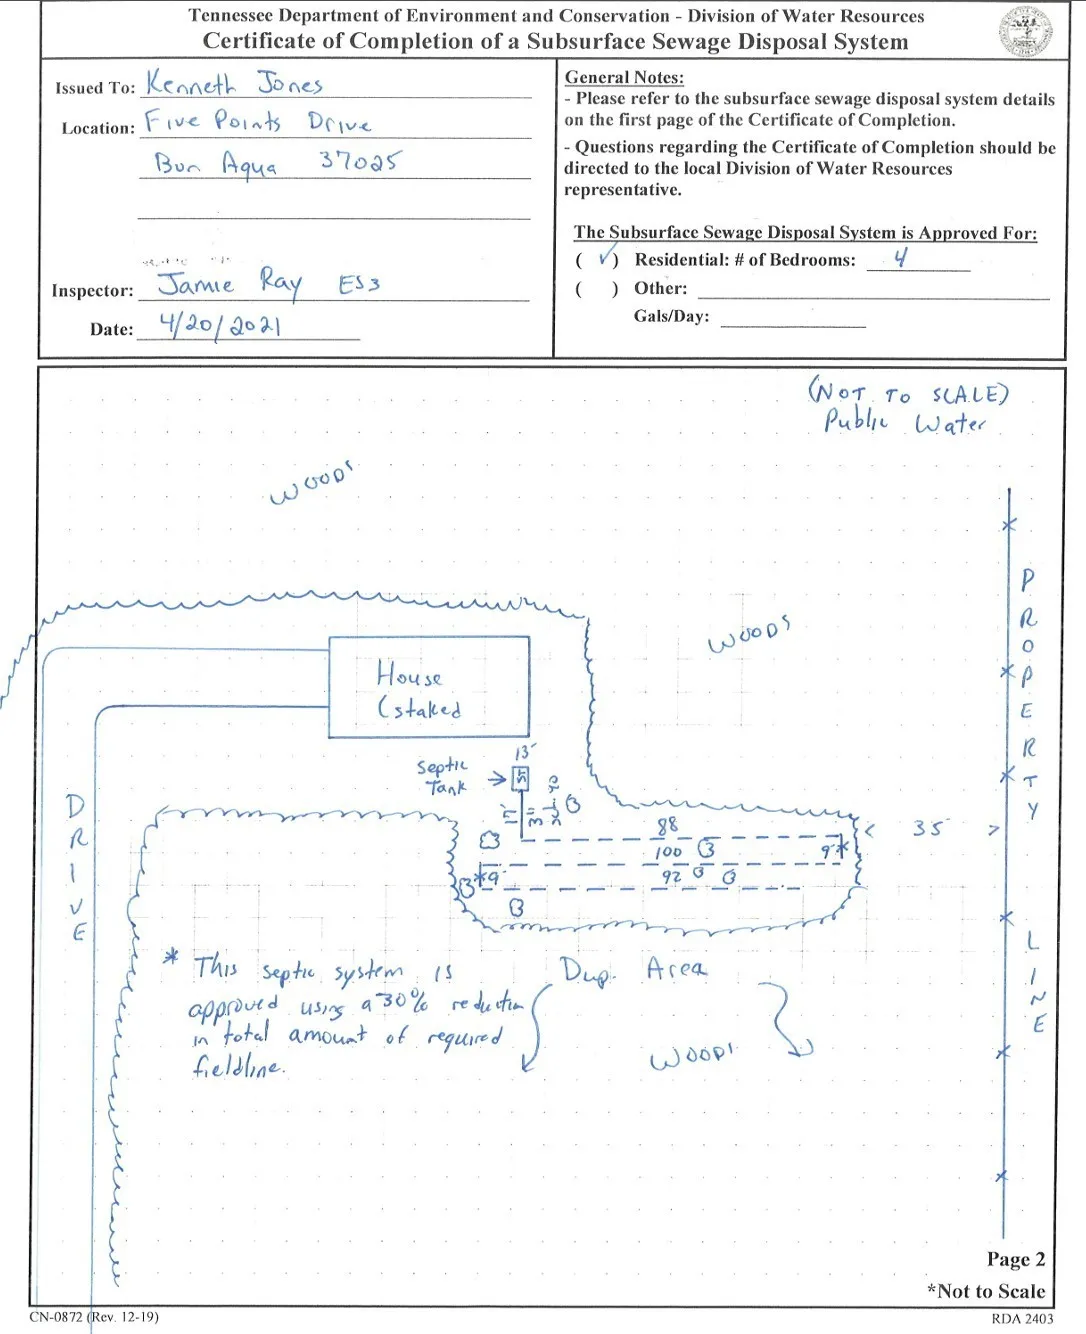 Tennessee Department of Environment and Conservation - Division of Water Resources
Certificate of Completion of a Subsurface Sewage Disposal System
Issued To: Kenneth Jones
Location: Five Points Drive
Bon Aqua 37025
Inspector: Jamie Ray ES3
Date: 4/20/2021
General Notes:
- Please refer to the subsurface sewage disposal system details
on the first page of the Certificate of Completion.
- Questions regarding the Certificate of Completion should be
directed to the local Division of Water Resources
representative.
The Subsurface Sewage Disposal System is Approved For:
( ✓ ) Residential: # of Bedrooms: 4
( ) Other:
Gals/Day:
(NOT TO SCALE)
Public Water
WOODS
WOODS
House
(staked
13'
Septic
Tank
ST
DRIVE
88
100
9'*
*9'
92
< 35 >
PROPERTY LINE
* This septic system is
approved using a 30% reduction
in total amount of required
fieldline.
Dup. Area
WOODS
Page 2
*Not to Scale
CN-0872 (Rev. 12-19)
RDA 2403